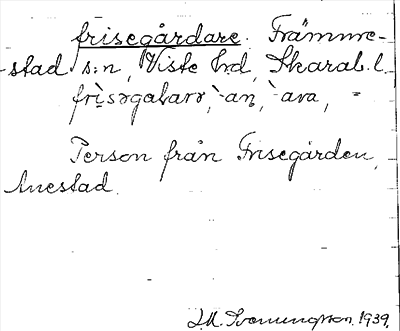 frisegårdare. Främme-
stad s:n, Viste hd, Skarab. l.
frìsəgaḷarə, -aṇ, -ara, =
Person från Frisegården,
Anestad.
1939.